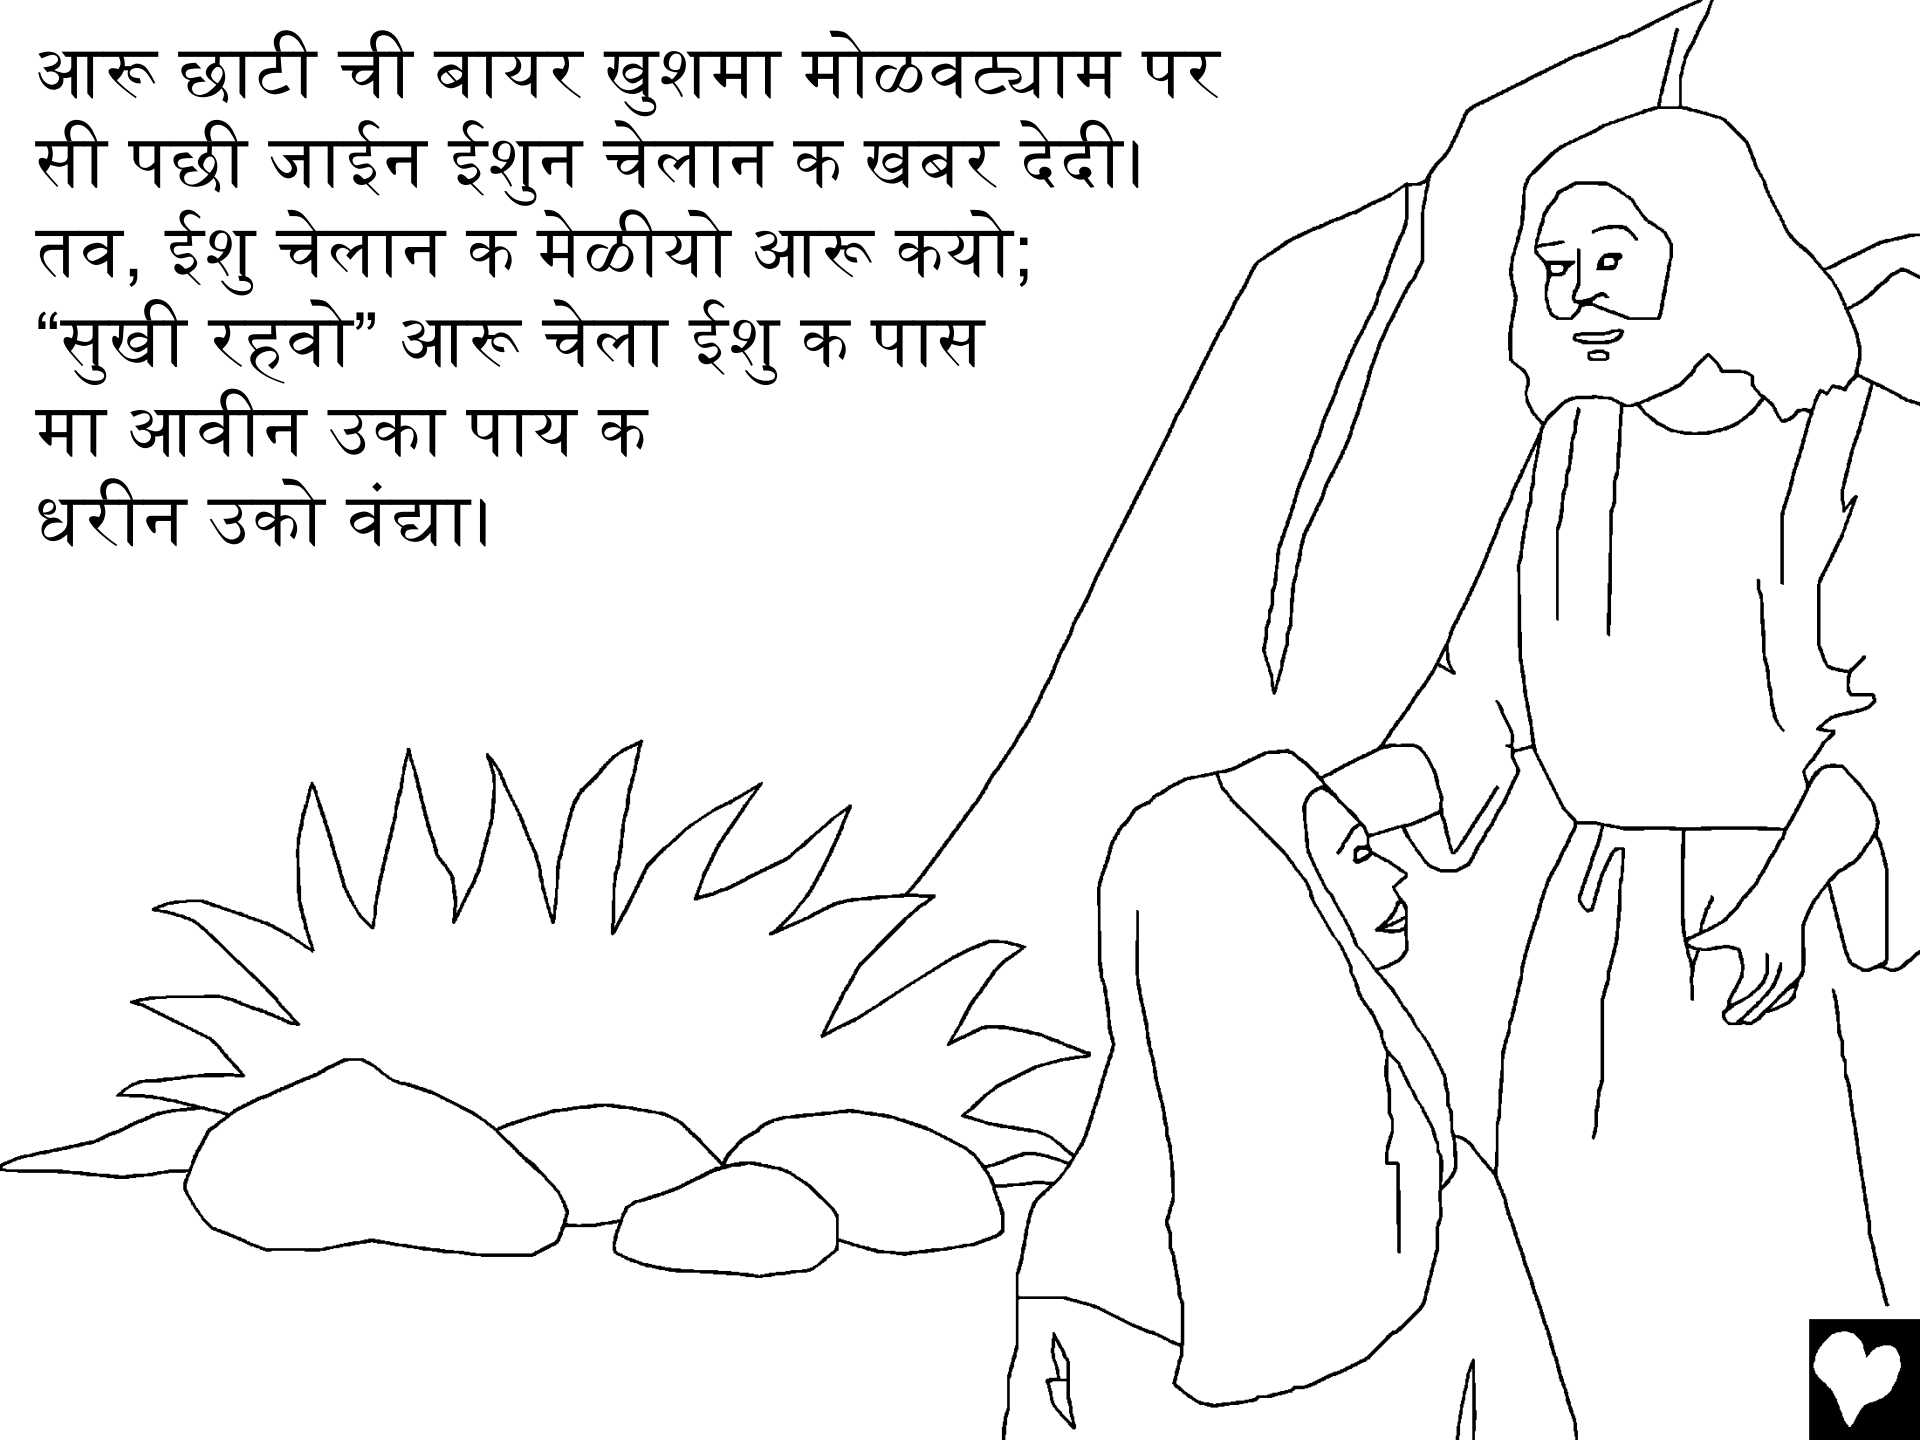 आरू छाटी ची बायर खुशमा मोळवट्याम पर
सी पछी जाईन ईशुन चेलान क खबर देदी।
तव, ईशु चेलान क मेळीयो आरू कयो;
“सुखी रहवो” आरू चेला ईशु क पास
मा आवीन उका पाय क
धरीन उको वंद्या।